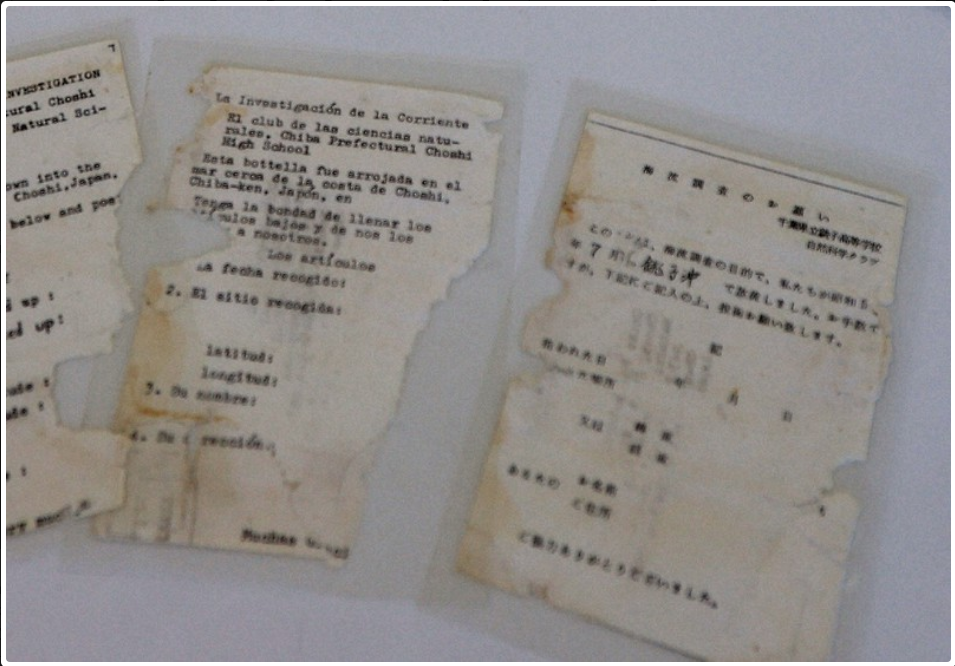 7
INVESTIGATION
Choshi
Natural Sci-
own into the
Choshi,Japan,
below and post
up :
up:
:
:
:
La Investigación de la Corriente
El club de las ciencias natu-
rales, Chiba Prefectural Choshi
High School
Esta bottella fue arrojada en el
mar cerca de la costa de Choshi,
Chiba-ken, Japón, en
Tenga la bondad de llenar los
bajos y de nos los
a nosotros.
Los artículos
La fecha recogido:
2. El sitio recogida:
latitud:
longitud:
3. Su nombre:
4. Su rección.
Muchas
海流調査のお願い
千葉県立銚子高等学校
自然科学クラブ
は、海流調査の目的で、私たちが昭和
年7月に銚子沖で放流しました。お手数で
すが、下記にご記入の上、お願い致します。
記
拾われた日 年 月 日
場所
又は
あなたの お名前
ご住所
ご協力ありがとうございました。